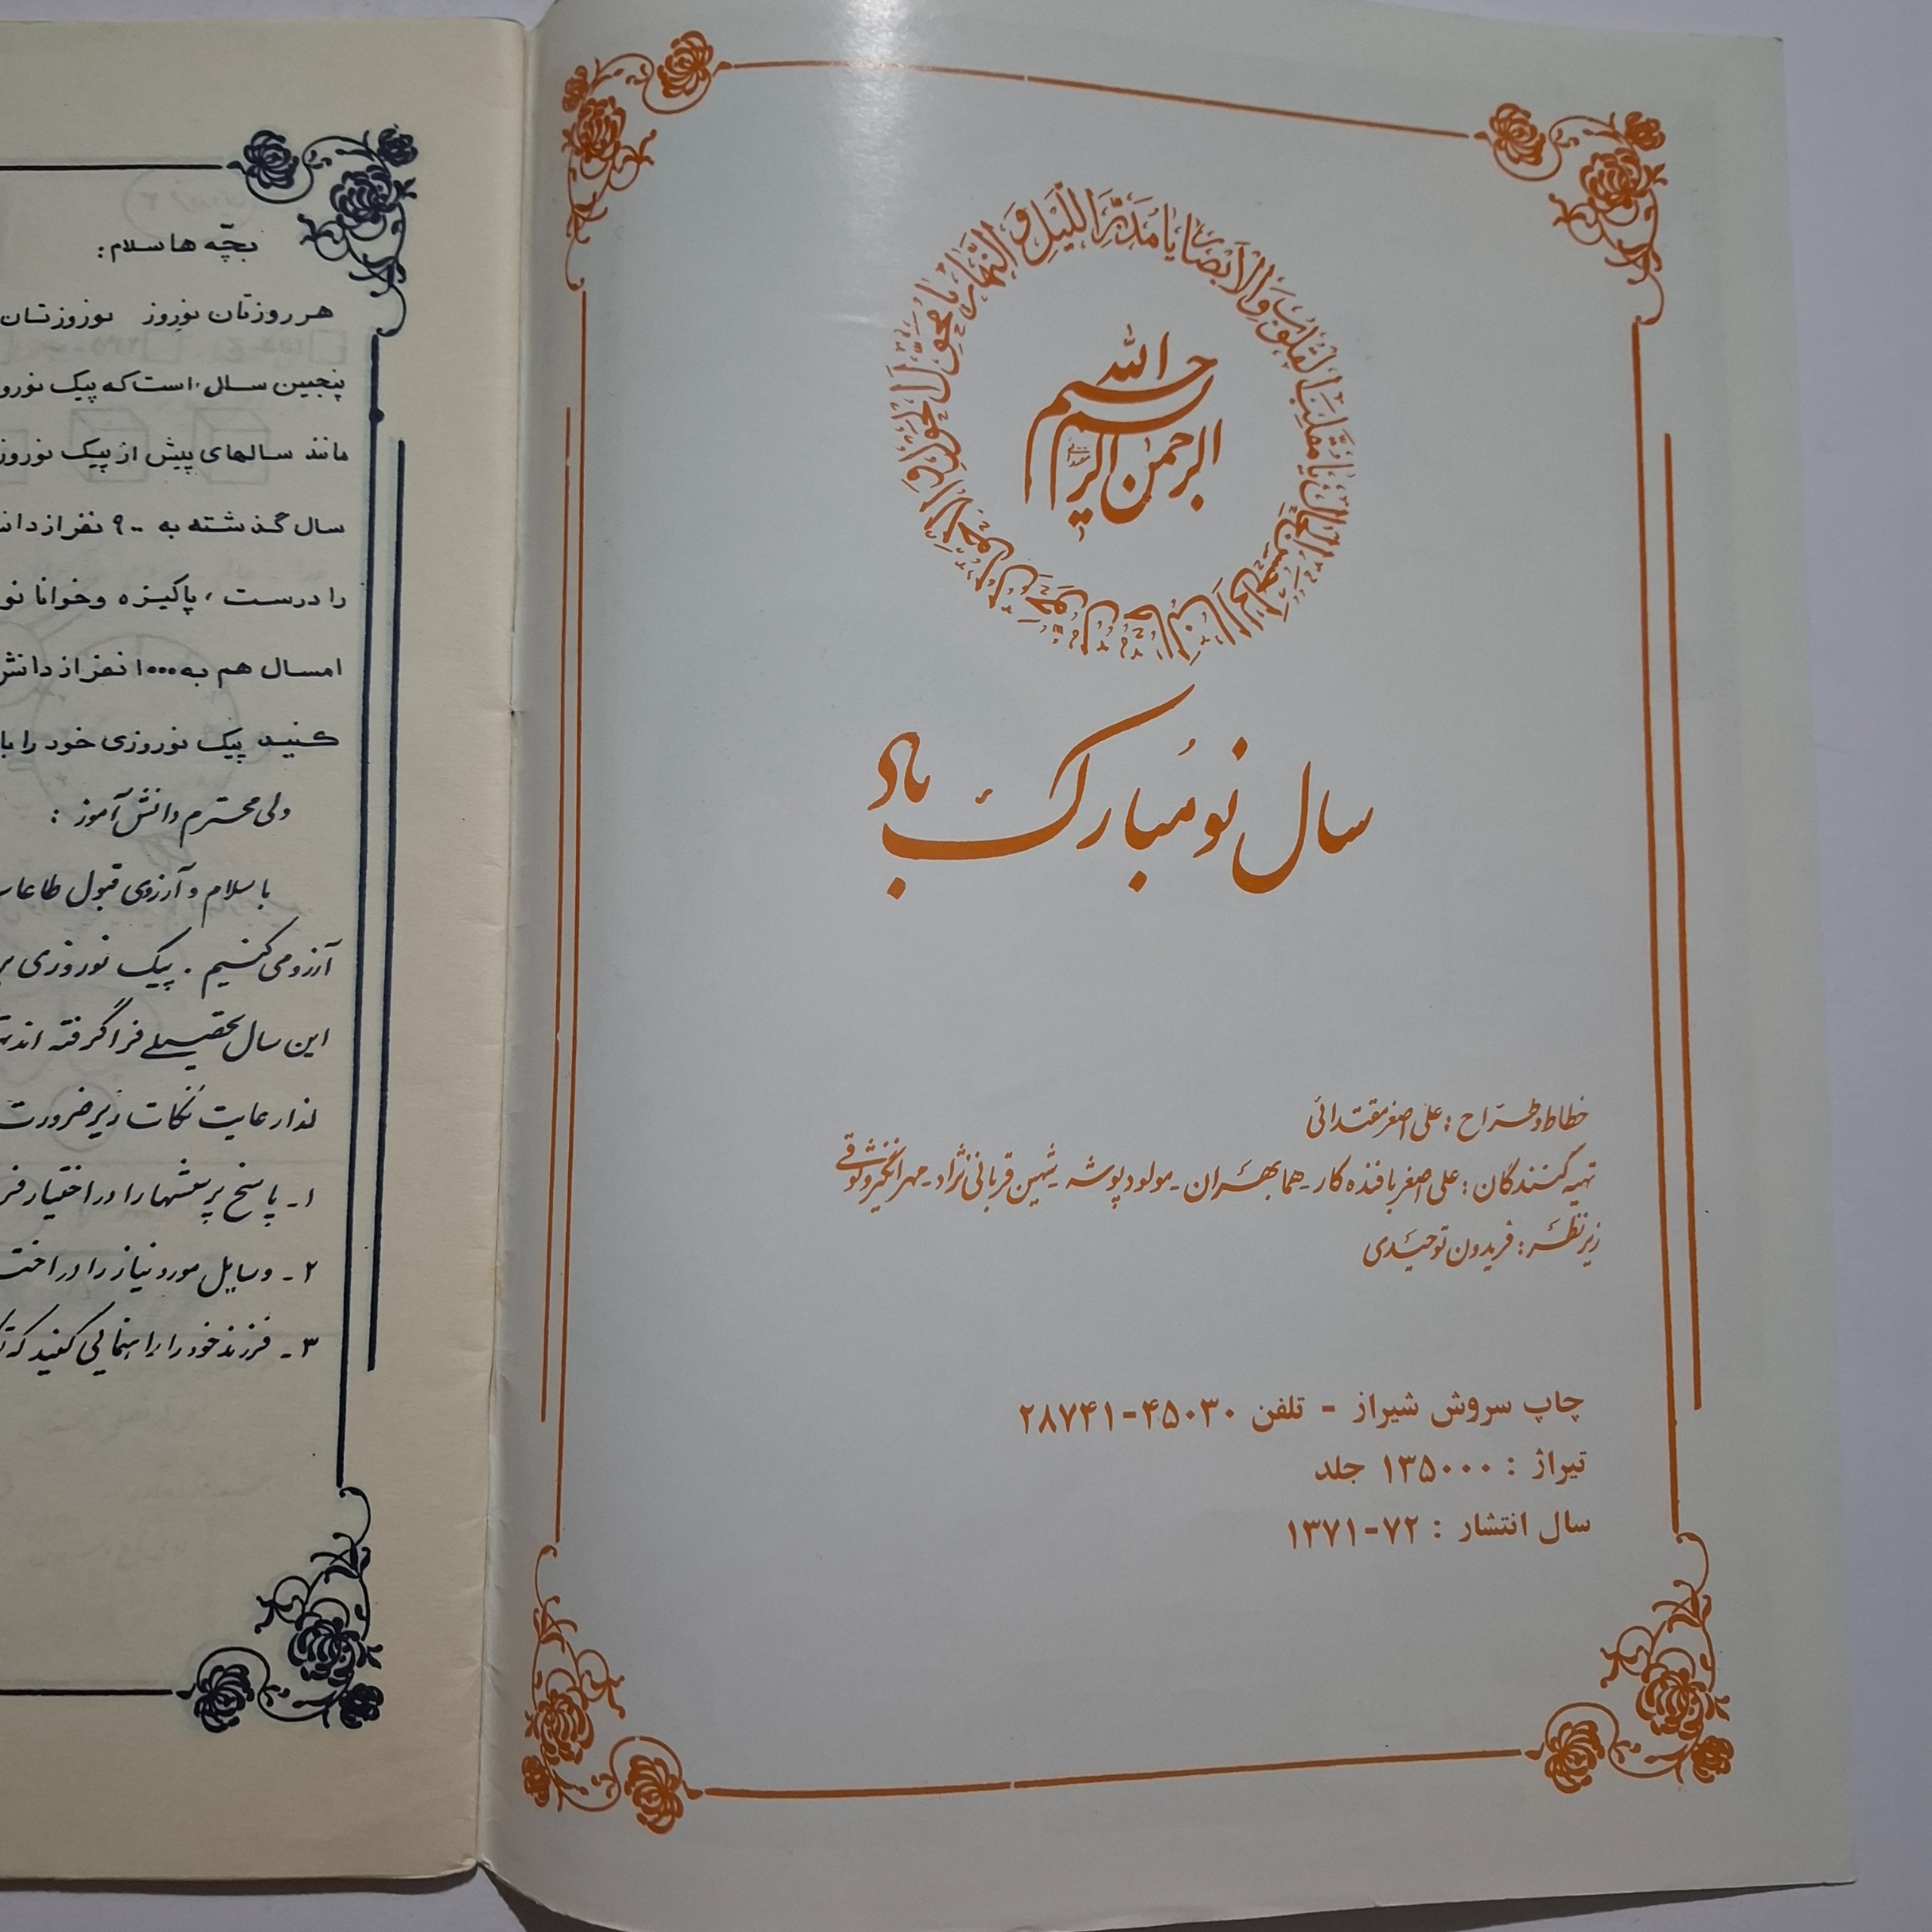 یا مقلب القلوب والابصار یا مدبر اللیل و النهار یا محول الحول والاحوال حول حالنا الی احسن الحال
بسم الله
الرحمن الرحیم
سال نو مُبارک باد
خطاط و طرّاح : علی اصغر مقتدائی
تهیه کنندگان : علی اصغر بافنده کار - هما بهسران - مولود پوشه - شهین قربانی نژاد - مهرانگیز وثوقی
زیر نظر : فریدون توحیدی
چاپ سروش شیراز - تلفن ۴۵۰۳۰-۲۸۷۴۱
تیراژ : ۱۳۵۰۰۰ جلد
سال انتشار : ۷۲-۱۳۷۱
بچّه ها سلام :
هر روزتان نوروز نوروزتان
پنجمین سال است که پیک نورو
مانند سالهای پیش از پیک نوروز
سال گذشته به ۹۰۰ نفر از دان
را درست ، پاکیزه و خوانا نو
امسال هم به ۱۰۰۰ نفر از دانش
کنید پیک نوروزی خود را با
ولی محترم دانش آموز :
با سلام و آرزوی قبول طاعات
آرزو می کنیم . پیک نوروزی بر
این سال تحصیلی فرا گرفته اند
لذا رعایت نکات زیر ضرورت
۱ - پاسخ پرسشها را در اختیار فر
۲ - وسایل مورد نیاز را در اخت
۳ - فرزند خود را راهنمایی کنید که